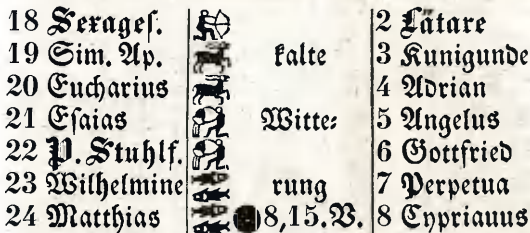 18 Sexages. 2 Lätare
19 Sim. Ap. kalte 3 Kunigunde
20 Eucharius 4 Adrian
21 Esaias Witte= 5 Angelus
22 P. Stuhlf. 6 Gottfried
23 Wilhelmine rung 7 Perpetua
24 Matthias 8,15.V. 8 Cyprianus